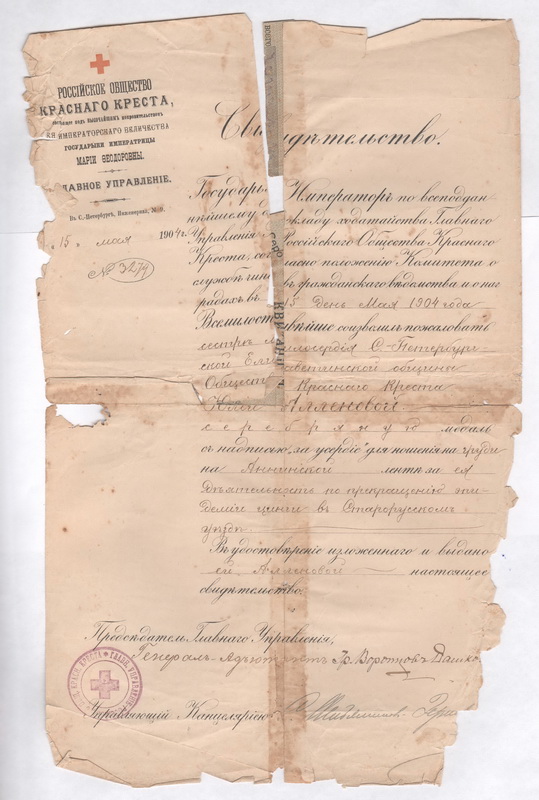 РОССІЙСКОЕ ОБЩЕСТВО
КРАСНАГО КРЕСТА,
состоящее подъ ВЫСОЧАЙШИМЪ покровительствомъ
ЕЯ ИМПЕРАТОРСКАГО ВЕЛИЧЕСТВА
ГОСУДАРЫНИ ИМПЕРАТРИЦЫ
МАРІИ ѲЕОДОРОВНЫ.
ГЛАВНОЕ УПРАВЛЕНІЕ.
Въ С.-Петербургѣ, Инженерная, № 9.
15 мая 1904 г.
№ 3274
Свидѣтельство.
Государь Императоръ по всеподдан
нѣйшему докладу ходатайства Главнаго
Управленія Россійскаго Общества Краснаго
Креста, согласно положенію Комитета о
службѣ чиновъ гражданскаго вѣдомства и о наг
радахъ въ 15 день Мая 1904 года
Всемилостивѣйше соизволилъ пожаловать
сестрѣ милосердія С.-Петербург-
ской Елисаветинской общины
Общества Краснаго Креста
Алленовой
серебряную медаль
съ надписью „за усердіе" для ношенія на груди
на Аннинской лентѣ за ея
дѣятельность по прекращенію эпи-
деміи цынги въ Старорусскомъ
уѣздѣ.
Въ удостовѣреніе изложеннаго и выдано
ей, Алленовой настоящее
свидѣтельство.
Предсѣдатель Главнаго Управленія,
Генералъ-Адъютантъ Гр. Воронцовъ Дашко
Управляющій Канцеляріею
КРАСН. КРЕСТА ГЛАВН. УПРАВЛЕНІЕ